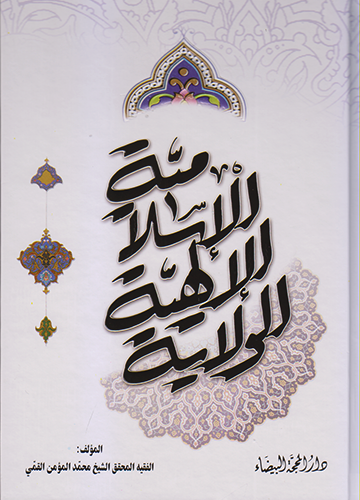 الولاية
الإلهية
الإسلامية
المؤلف:
الفقيه المحقق الشيخ محمّد المؤمن القمّي
دار المحجّة البيضاء